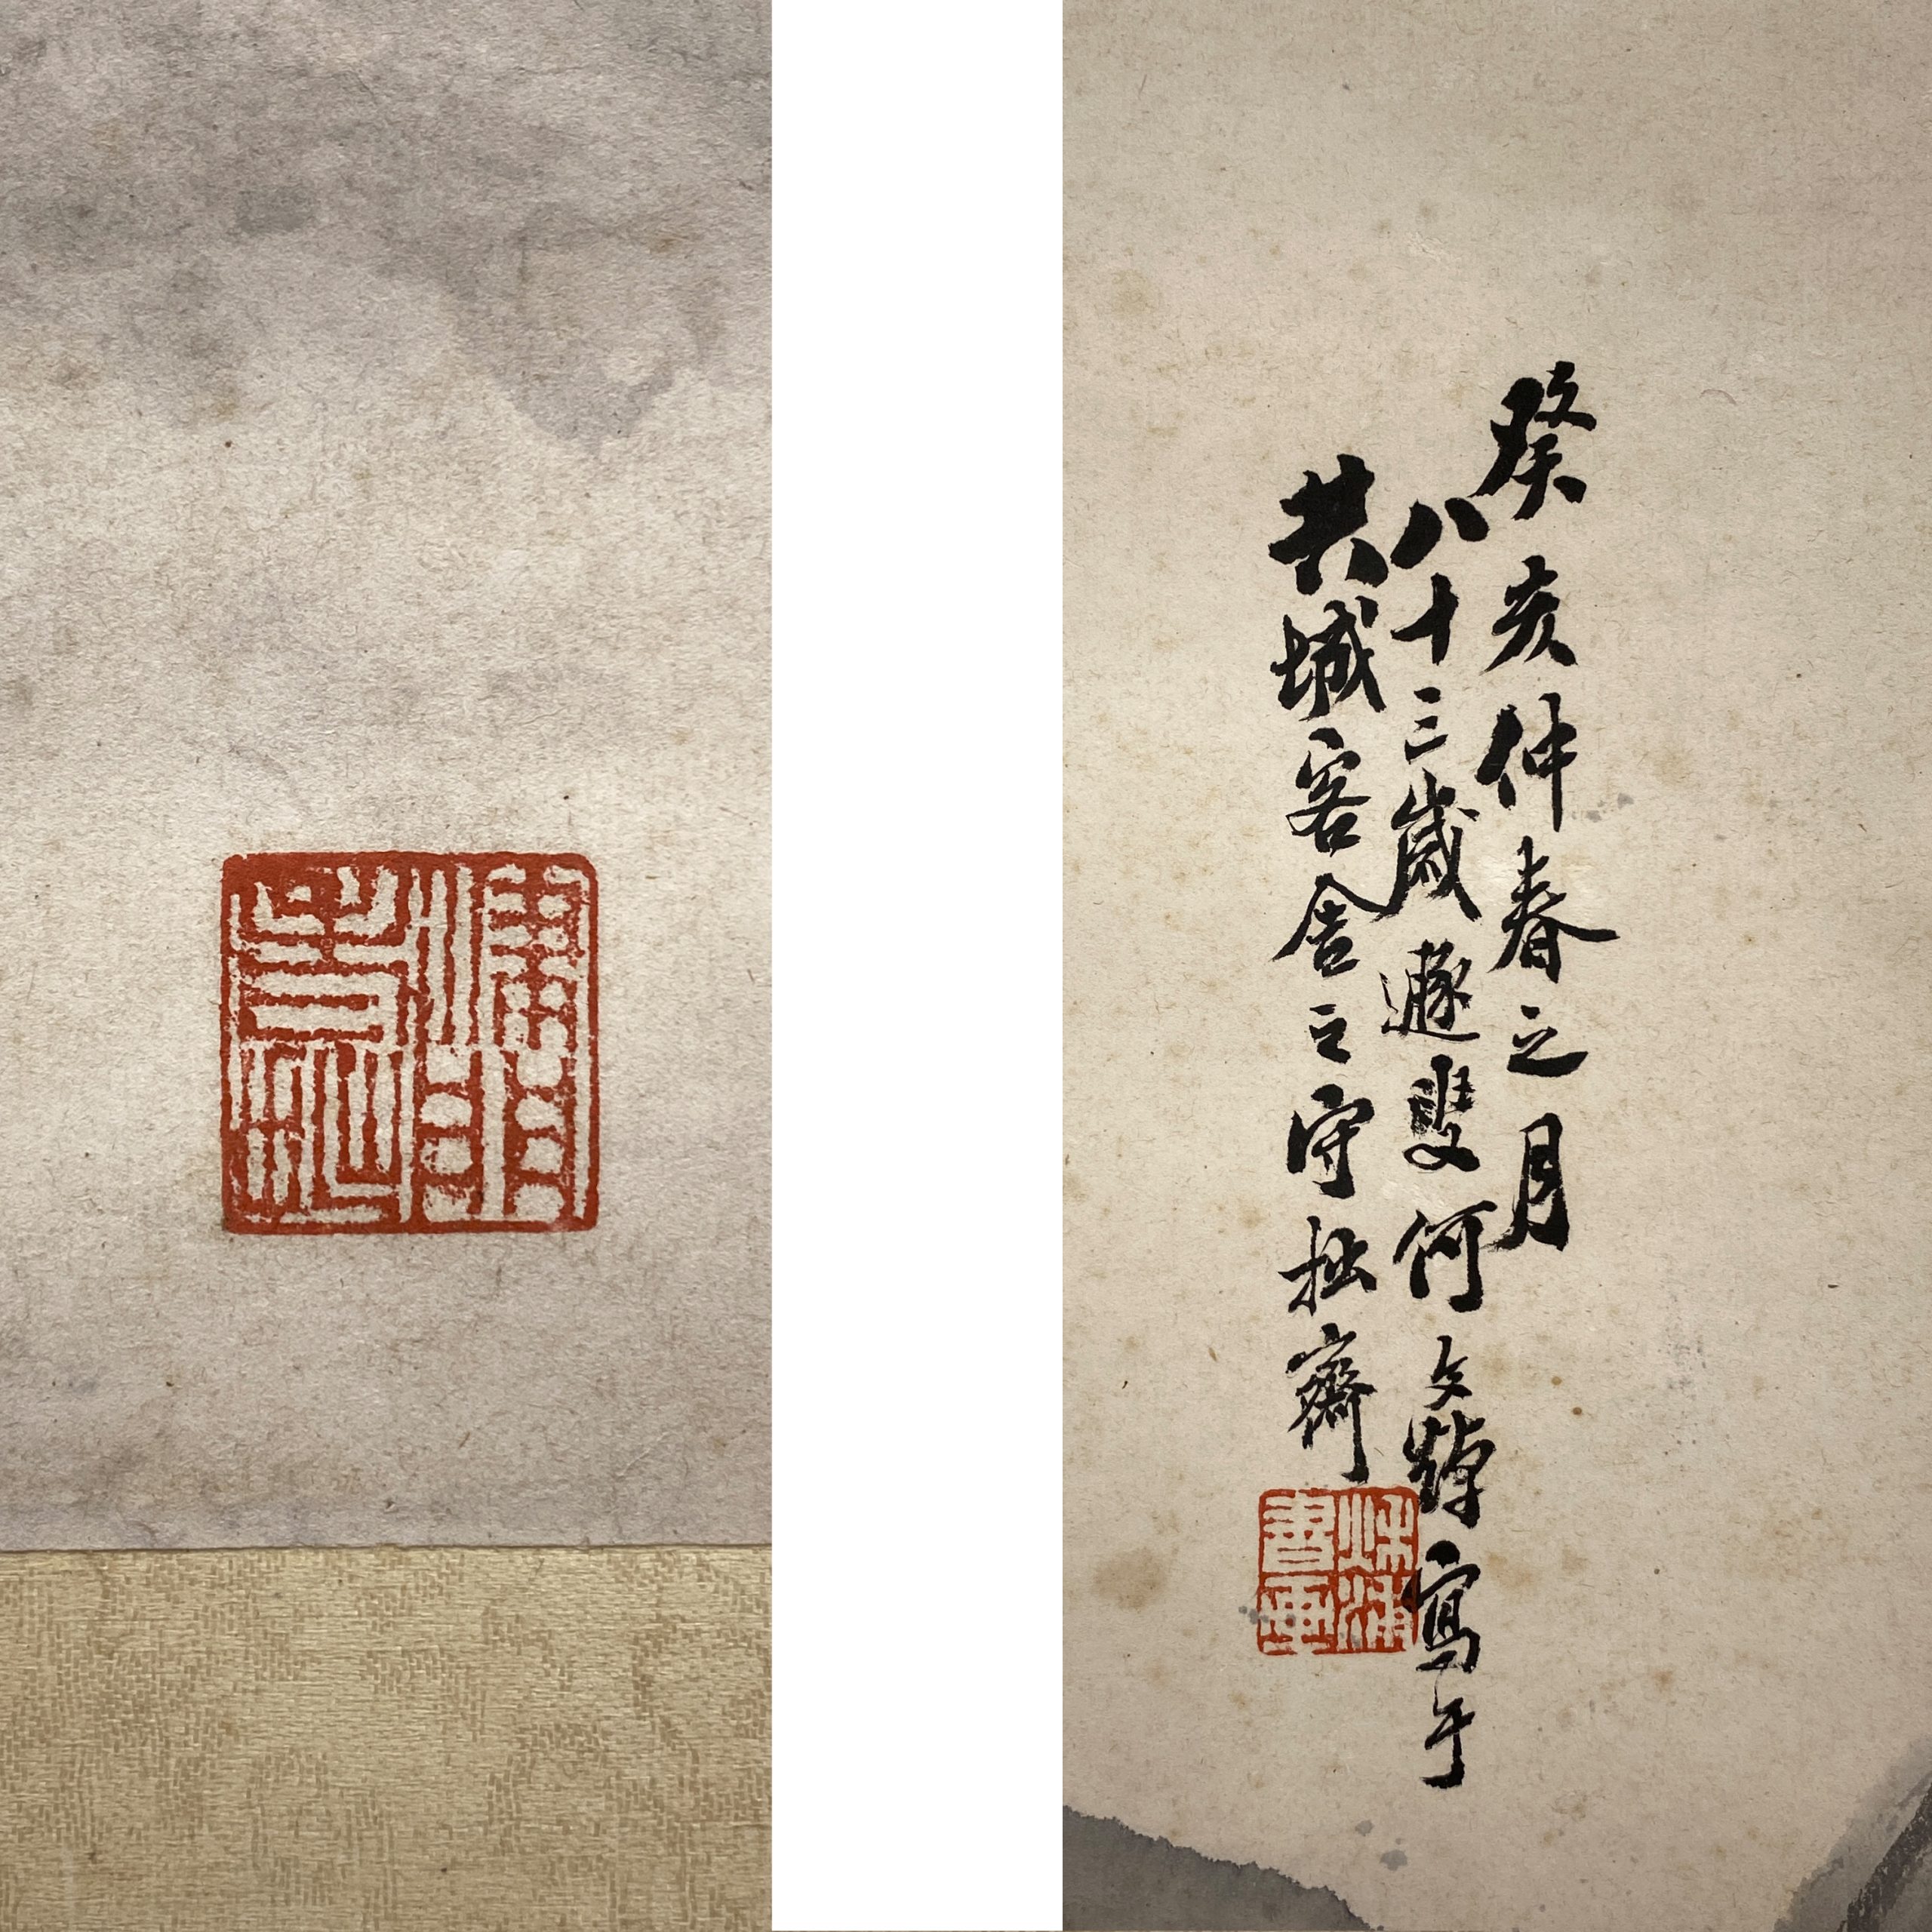 癸亥仲春之月
八十三歲遯叟何文寫于
共城客舍之守拙齋
秌浦
書畫